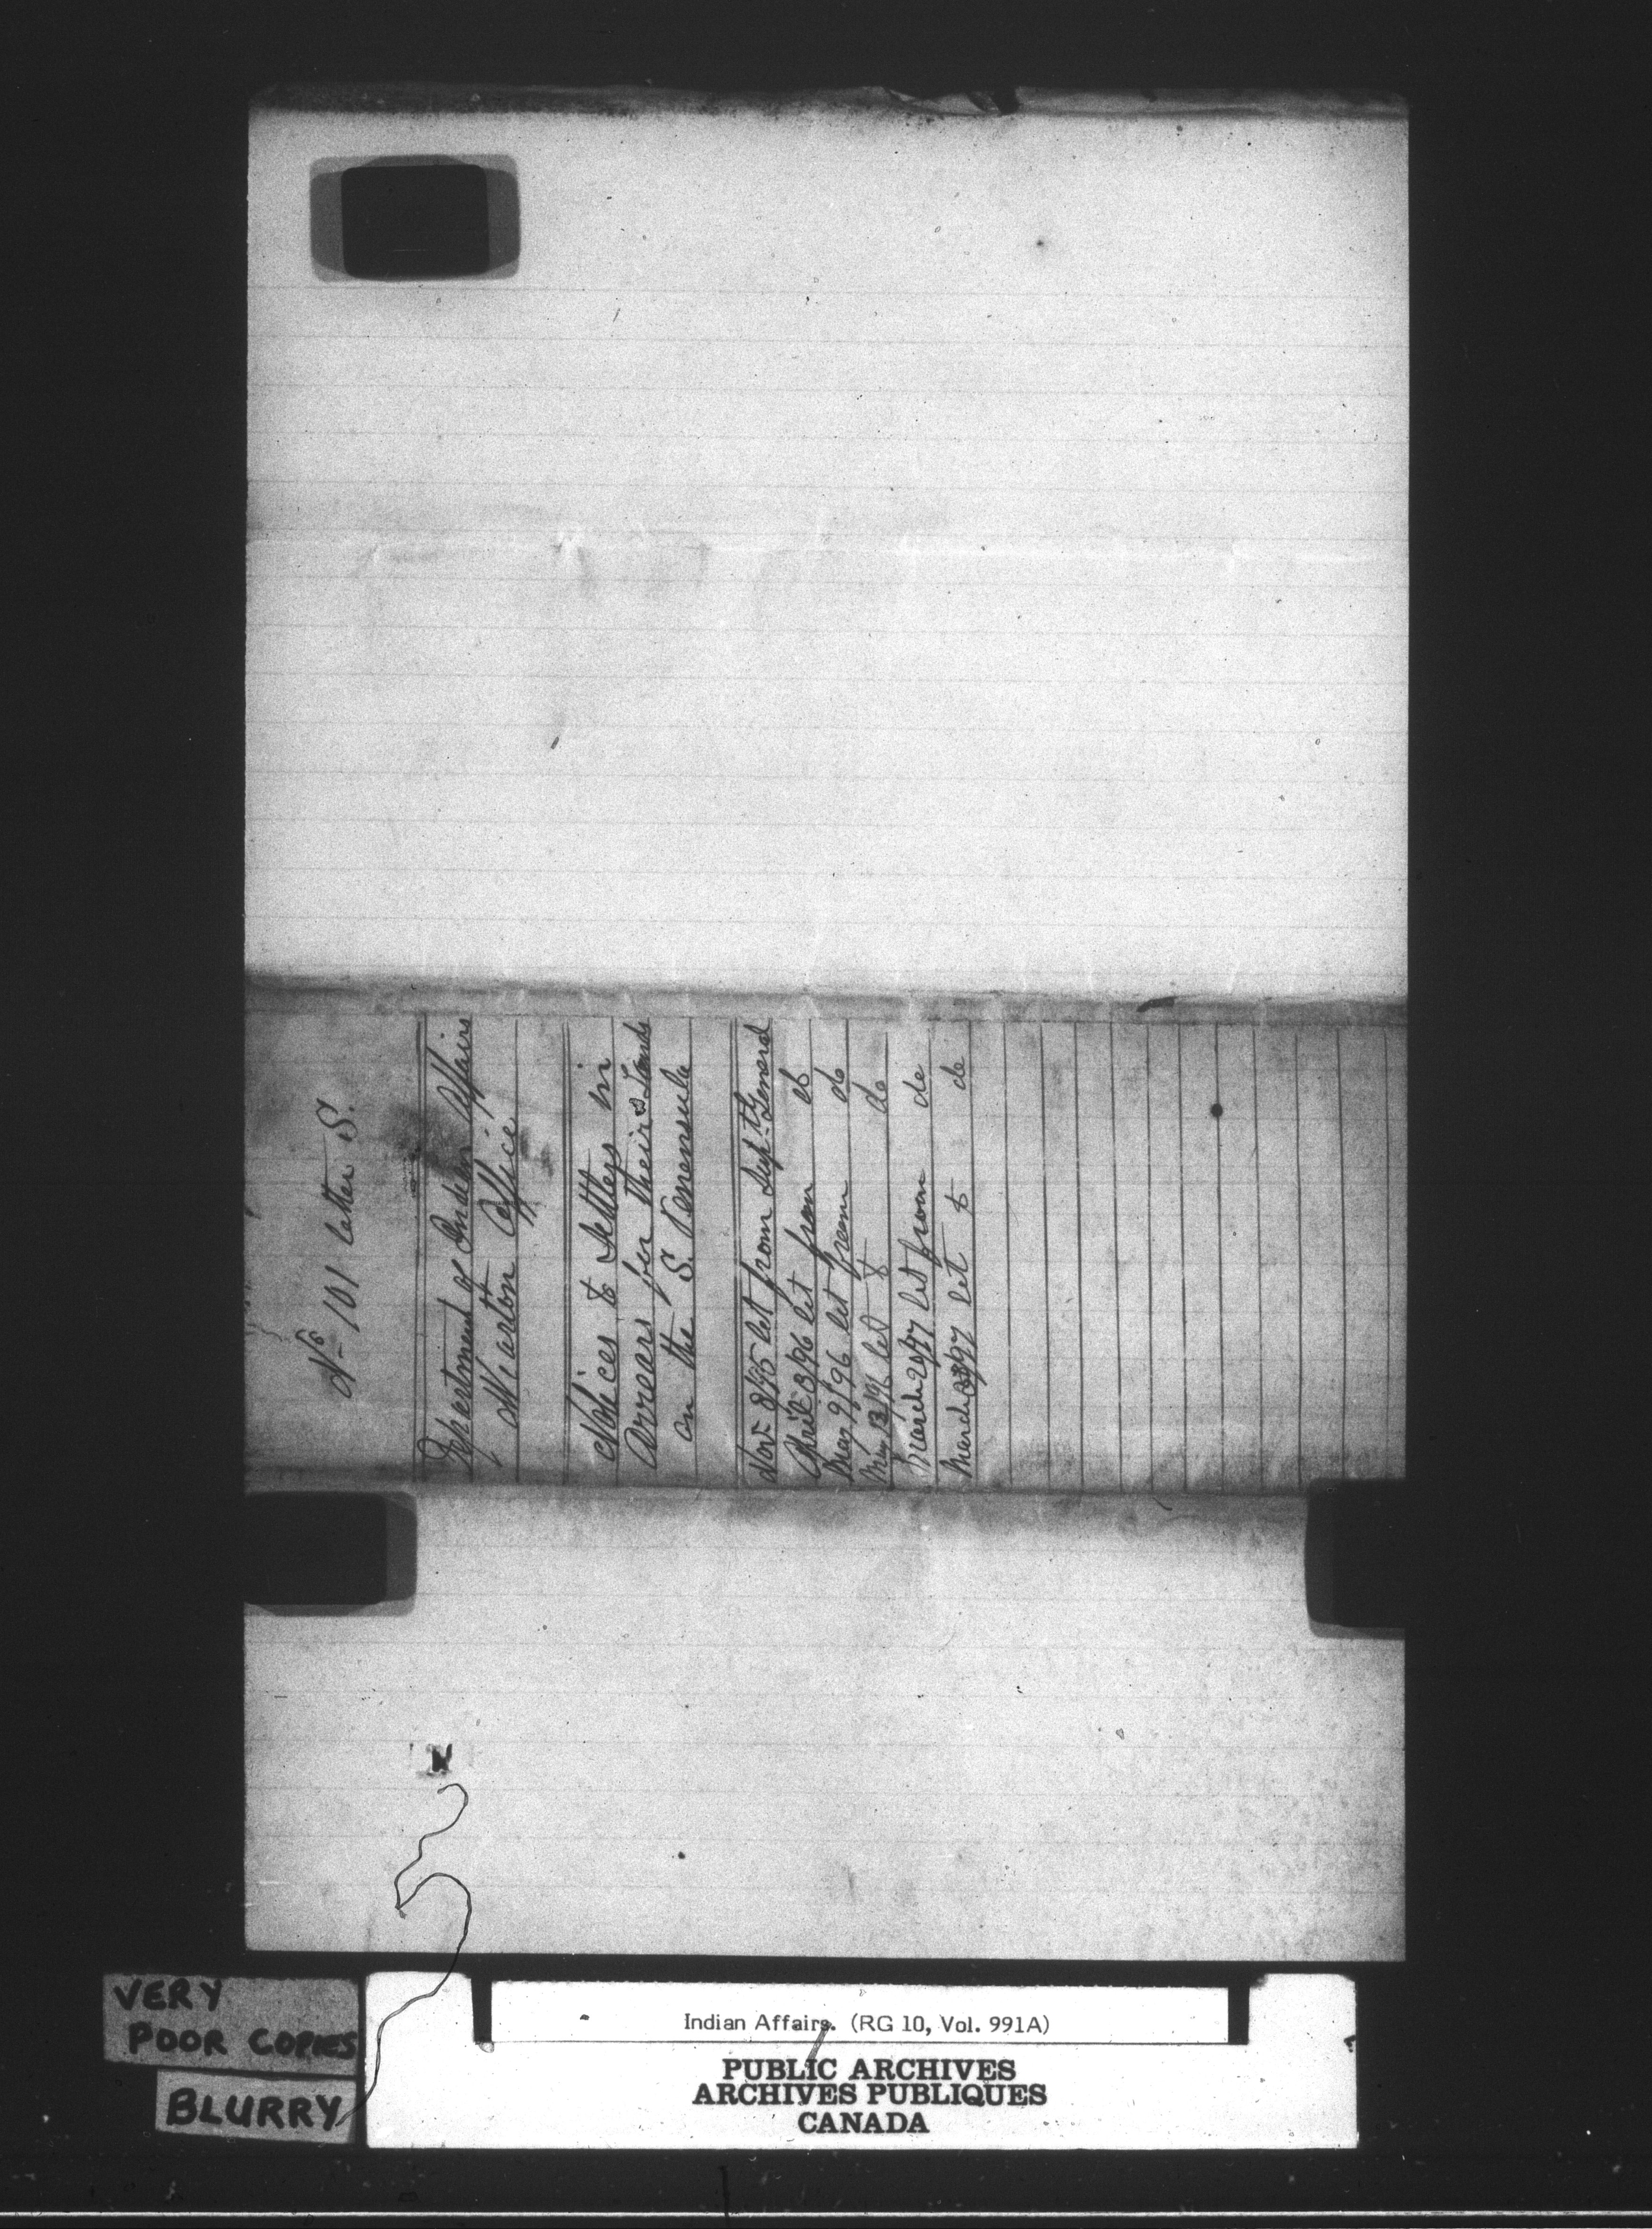 No 101 letter S.
Department of Indian Affairs
Wiarton Office
Notices to Settlers in
Arrears for their Lands
on the S. Peninsula
Nov 8/95 let from Supt General
April 8/96 let from do
May 9/96 let from do
May 13/96 let to do
March 2/97 let from do
March /97 let to do
VERY
POOR COPIES
BLURRY
Indian Affairs. (RG 10, Vol. 991A)
PUBLIC ARCHIVES
ARCHIVES PUBLIQUES
CANADA